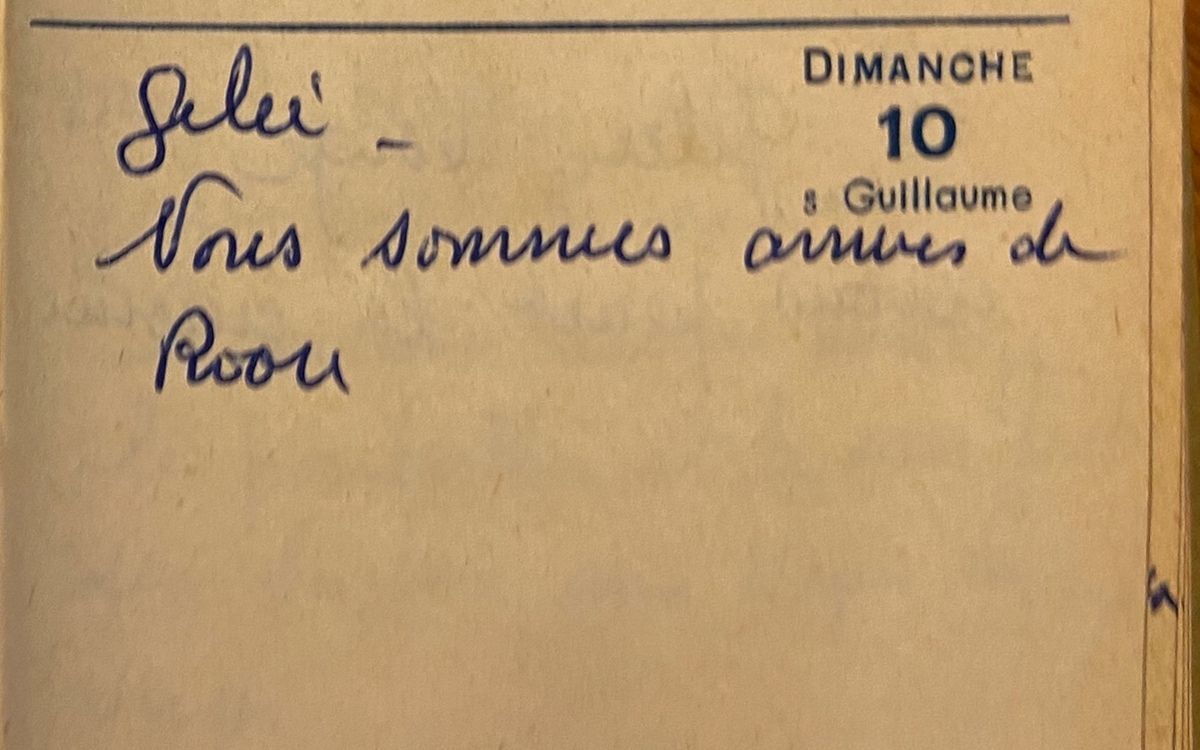 DIMANCHE
10
s Guillaume
Gelée -
Nous sommes arrivés de
Roou